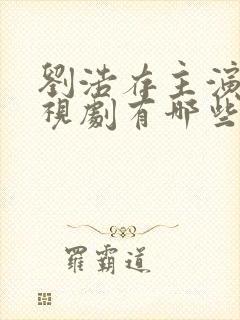 劉浩存主演
視劇有哪些
羅霸道